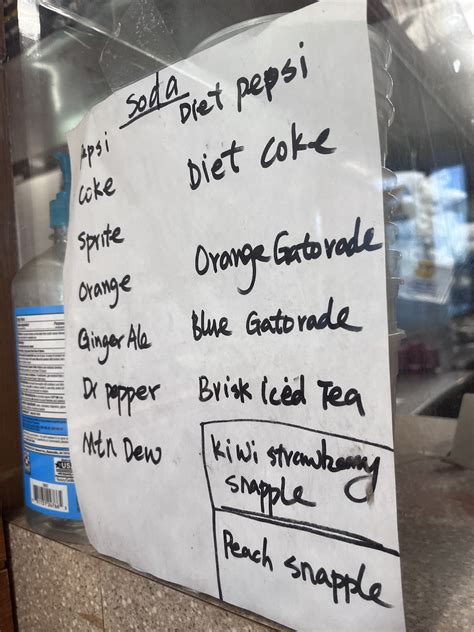 Soda
Pepsi
Coke
Sprite
Orange
Ginger Ale
Dr pepper
Mtn Dew
Diet pepsi
Diet coke
Orange Gatorade
Blue Gatorade
Brisk Iced Tea
Kiwi strawberry
snapple
Peach snapple